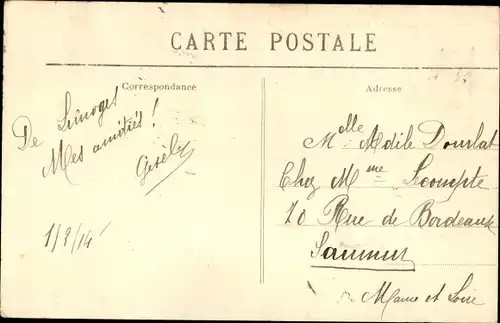 CARTE POSTALE
Correspondance
Adresse
De Limoges
Mes amitiés !
Gisèle
1/2/14
Mdlle Odile Dourlat
Chez Mme Lecompte
20 Rue de Bordeaux
Saumur
Maine et Loire